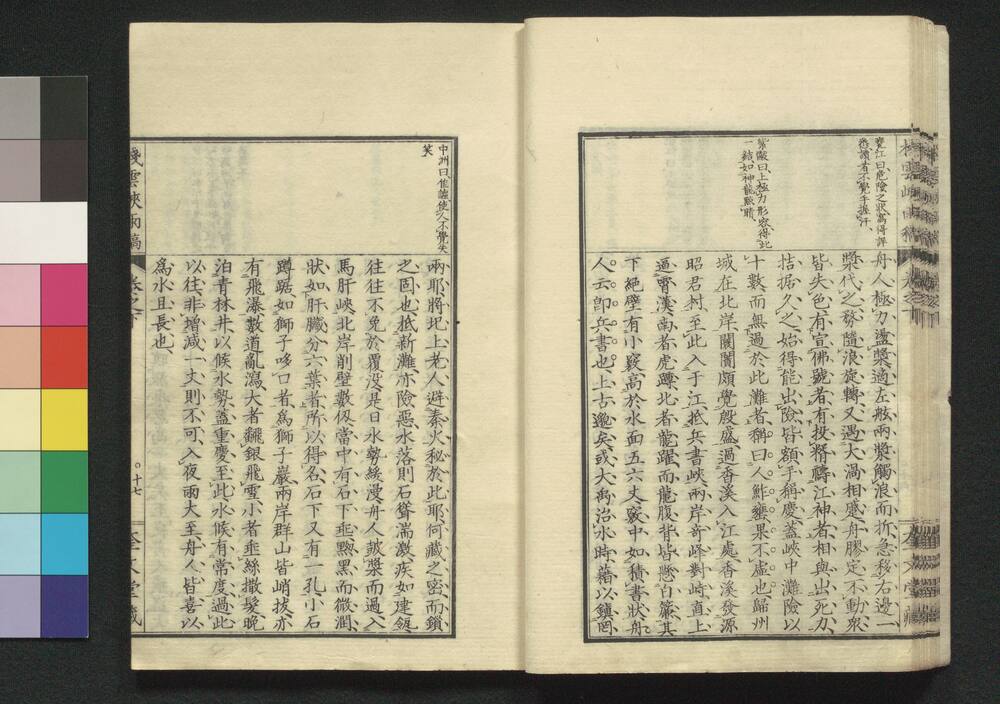 甕江曰危險之狀寫得詳
悉讀者不覺手握汗
紫瞰曰上極力形容得此
一結如神龍點睛
舟人極力盪槳適左舷兩槳觸浪而折急移右邊一
槳代之務隨浪旋轉又遇大渦相盛舟膠定不動衆
皆失色有宣佛號者有投糈禱江神者相與出死力
拮据久之始得能出險皆額手稱慶蓋峽中灘險以
十數而無過於此灘者稱曰人鮓甕果不虛也歸州
城在北岸闤闠頗覺殷盛過香溪入江處香溪發源
昭君村至此入于江抵兵書峽兩岸奇峰對峙直上
逼霄漢南者虎蹲北者龍躍而龍腹背皆懸白簾其
下絕壁有小竅高於水面五六丈竅中如積書狀舟
人云卽兵書也上古邈矣或大禹治水時藉以鎭罔
中洲曰僬譃使人不覺失
笑
兩耶將圯上老人避秦火秘於此耶何藏之密而鎖
之固也抵新灘亦險惡水落則石聳湍激疾如建瓴
往往不免於覆没是日水勢緩漫舟人鼓槳而過入
馬肝峽北岸削壁數仭當中有石下垂黝黑而微潤
狀如肝臟分六葉者所以得名石下又有一孔小石
蹲踞如獅子哆口者爲獅子巖兩岸群山皆峭拔亦
有飛瀑數道亂瀉大者飜銀飛雪小者垂絲撒髮晚
泊青林井以候水勢蓋重慶至此水候有常度過此
以往非增減一丈則不可入夜雨大至舟人皆喜以
爲水且長也
棧雲峽雨稿
卷之下
十七
奎文堂藏